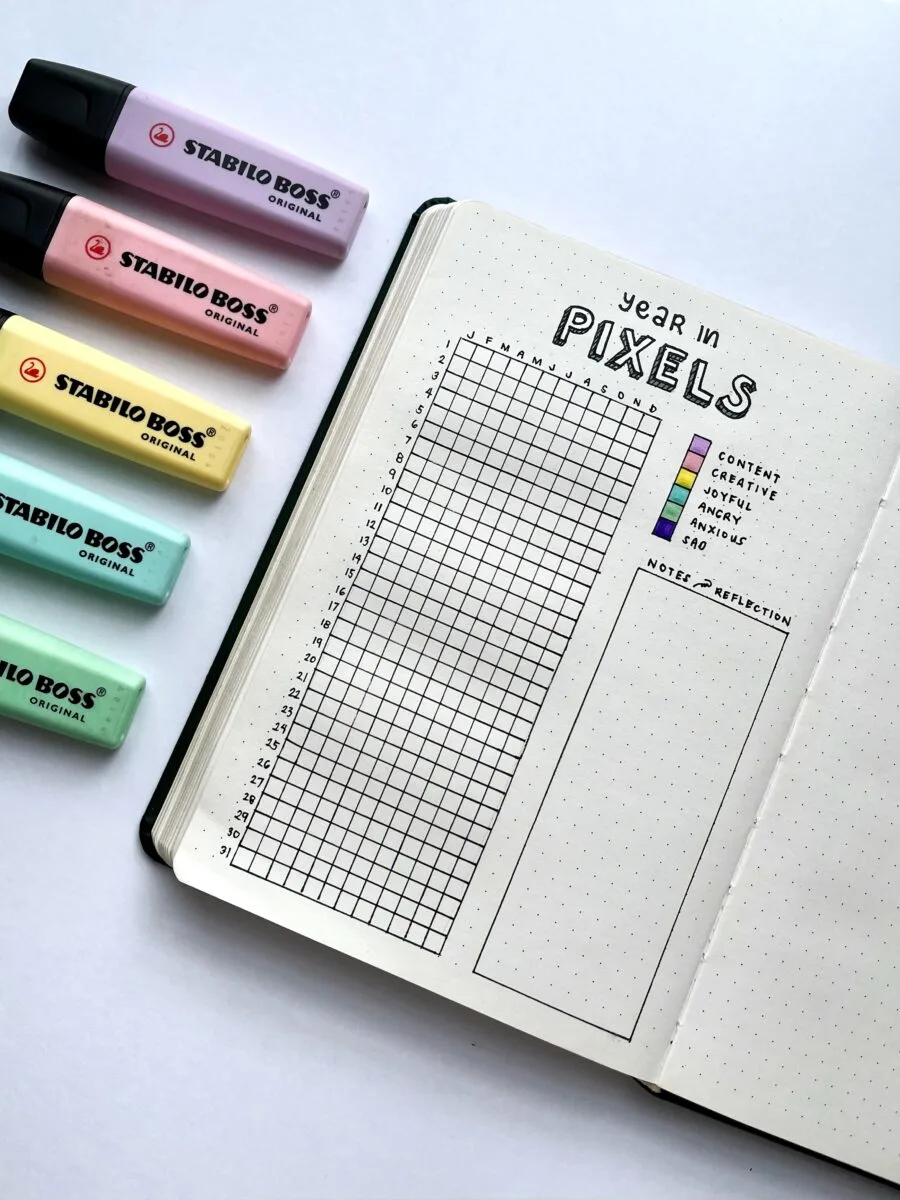 STABILO BOSS®
ORIGINAL
STABILO BOSS®
ORIGINAL
STABILO BOSS®
ORIGINAL
STABILO BOSS®
ORIGINAL
ILO BOSS®
ORIGINAL
year in
PIXELS
J F M A M J J A S O N D
1
2
3
4
5
6
7
8
9
10
11
12
13
14
15
16
17
18
19
20
21
22
23
24
25
26
27
28
29
30
31
CONTENT
CREATIVE
JOYFUL
ANGRY
ANXIOUS
SAD
NOTES → REFLECTION